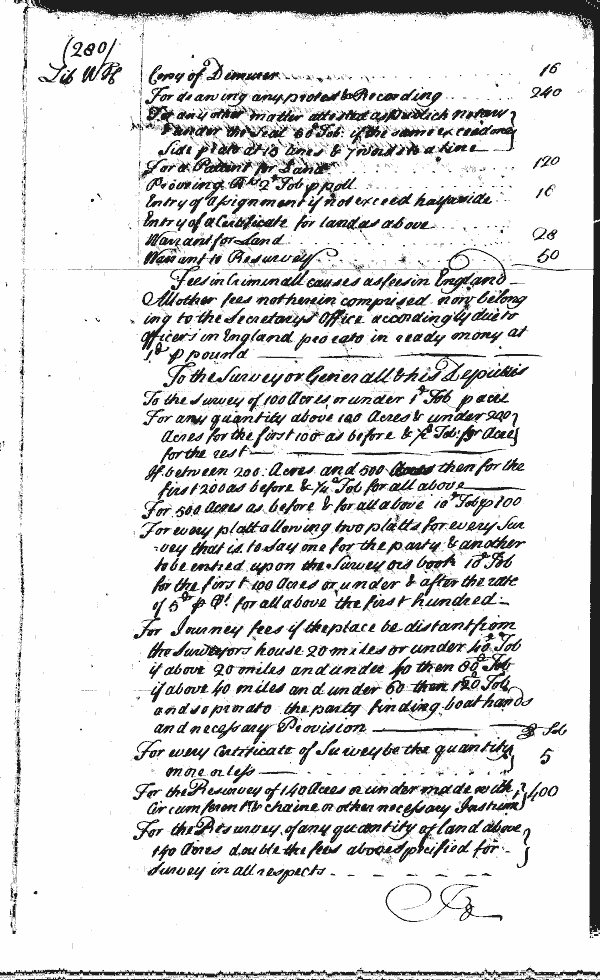 (280)
Lib W H
Copy of Dimurer 16
For drawing any protest & Recording 240
For any other matter attested as publick notary
& under the Seal 60 Tob: if the same exceed one
Side plate at 15 Lines & 7 words to a Line
For a Patent for Land 120
Prooving Rts 2 Tob p poll
Entry of assignment if not exceed half a side 16
Entry of a Certificate for land as above
Warrant for Land 28
Warrant to Resurvey 50
Fees in Criminall causes as fees in England
All other fees not herein comprised now belong
ing to the Secretarys Office accordingly due to
Officers in England pro rato in ready mony at
1d p pound
To the Surveyor Generall & his Deputies
To the Survey of 100 Acres or under 1 Tob p acre
For any quantity above 100 Acres & under 200
Acres for the first 100 as before & ½ Tob: for Acre
for the rest
If between 200 Acres and 500 then for the
first 200 as before & ¼ Tob for all above
For 500 Acres as before & for all above 10 Tob p 100
For every platt allowing two platts for every Sur
vey that is to say one for the party & another
to be entred upon the Surveyors book 10 Tob
for the first 100 Acres or under & after the rate
of 5 p Ct. for all above the first hundred
For Journey fees if the place be distant from
the Surveyors house 20 miles or under 40 Tob
if above 20 miles and under 40 then 80 Tob
if above 40 miles and under 60 then 120 Tob
and so pro rato the party finding boat hands
and necessary Provision Tob
For every Certificate of Survey be the quantity 5
more or less
For the Resurvey of 140 Acres or under made with 400
Circumferentr & chaine or other necessary Instrum
For the Resurvey of any quantity of land above
140 Acres double the fees above specified for
Survey in all respects